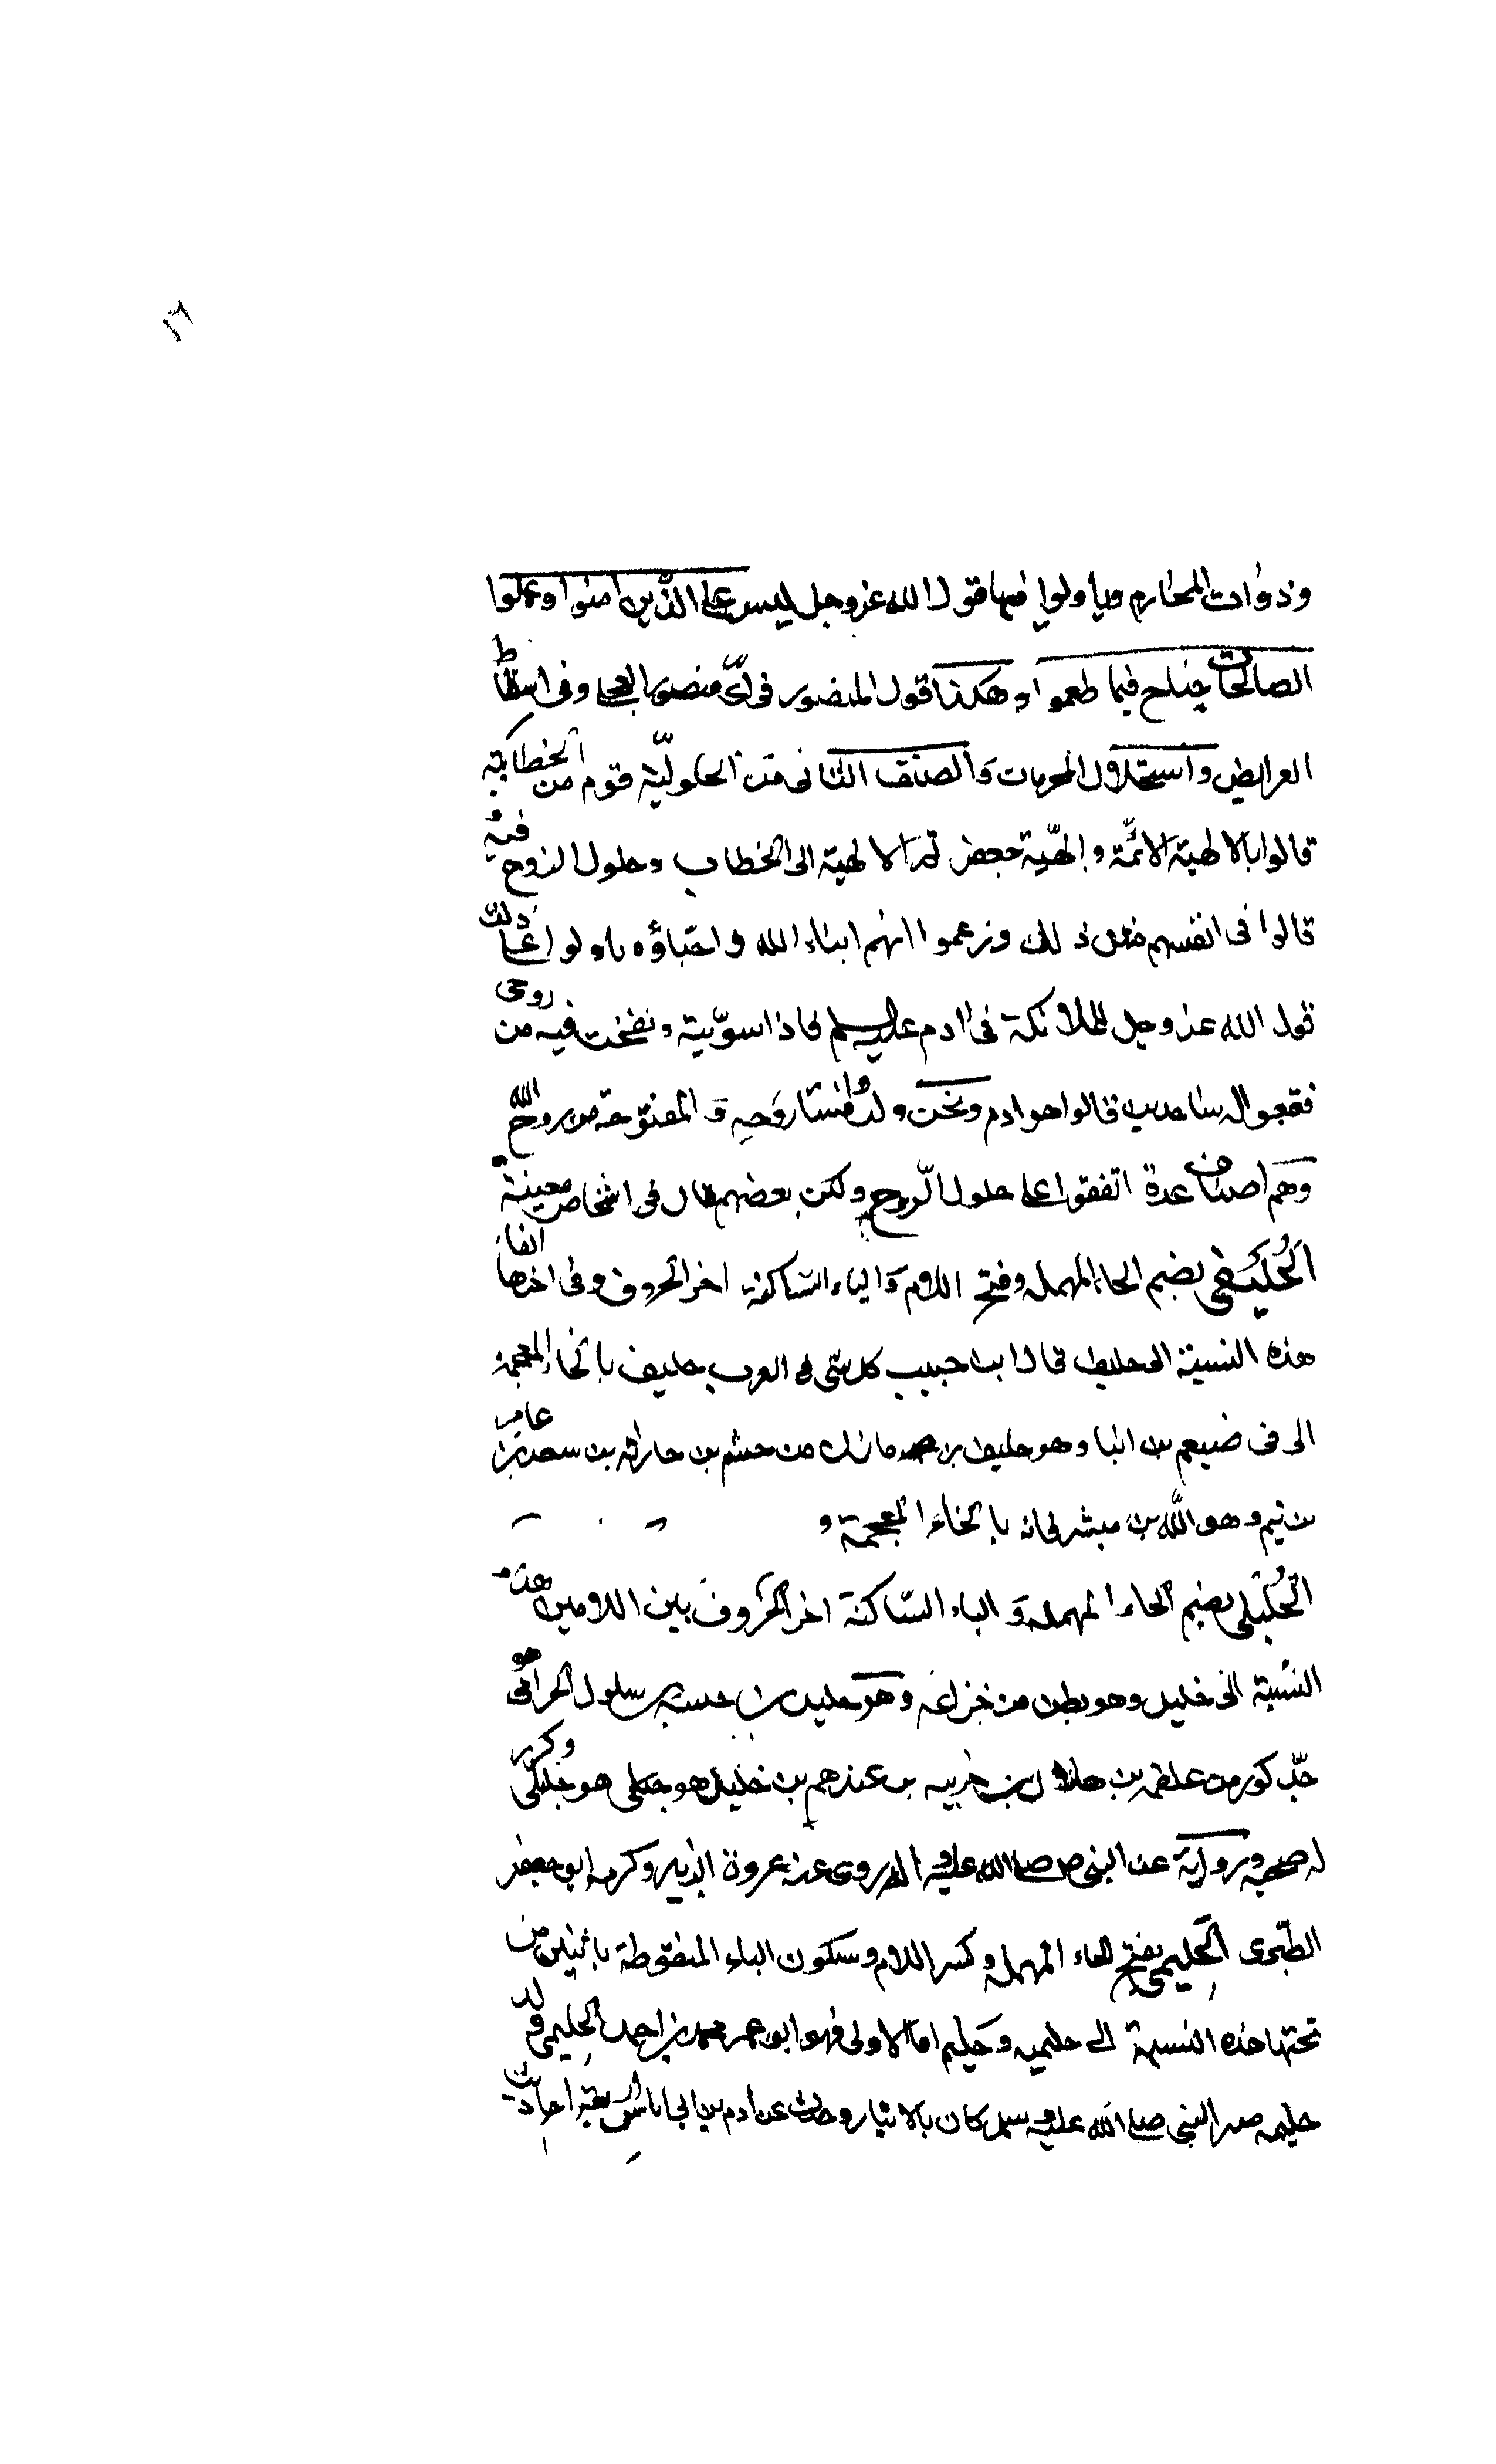 وذوات المحارم وياولوا فيها قول الله عز وجل ليس على الذين امنوا وعملوا
الصالحات جناح فيما طعموا وهكذا قول المنصور في ابي منصور العجلي وفي اسقاط
الفرايض واستحلال المحرمات والصنف الثاني من الحلولية قوم من الخطابية
قالوا بالالهية الائمة والهية جعفر ثم الالهية الى الخطاب وحلول الروح فيه
قالوا في انفسهم مثل ذلك وزعموا انهم ابناء الله واحباؤه ياولوا على ذلك
قول الله عز وجل للملائكة في ادم عليه السلم فاذا سويته ونفخت فيه من روحي
فقعوا له ساجدين قالوا هو ادم ونحن ولده روحه المنفوخة من روح الله
وهم اصناف عدة اتفقوا على حلول الروح ولكن بعضهم قال في اشخاص معينة
الحليفي بضم الحاء المهملة وفتح اللام والياء الساكنة اخر الحروف وفي اخرها الفاء
هذه النسبة الى حليف قال ابن حبيب كل شي في العرب حليف بالخاء المعجمة
الى في بن وهو حليف بن مازن من جشم بن حارثة بن سعد بن عامر
بن تيم وهو الله بن مبشر فانه بالخاء المعجمة و
الحليلي بضم الحاء المهملة والياء الساكنة اخر الحروف بين اللامين هذه
النسبة الى حليل وهو بطن من خزاعة وهو حليل بن حبشية بن سلول الخزاعي هو
جد كرز بن علقمة بن هلال بن جريبة بن عبدنهم بن حليل هو حليلي وكرز
له صحبة ورواية عن النبي صلى الله عليه واله روى عنه عروة الزبير وكرمه ابو جعفر
الطبري الحليمي بفتح الحاء المهملة وكسر اللام وسكون الياء المنقوطة باثنين من
تحتها هذه النسبة الى حليمة وحليم اما الاولى فهو ابو عمر محمد بن احمد الحليمي ولد
حليمة النبي صلى الله عليه وسلم كان بالانبار وحدث عن ادم بن ابي اياس احاديث